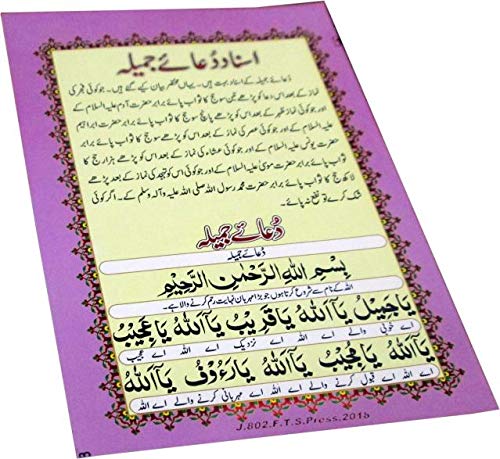 اسناد دُعائے جمیلہ
دُعائے جمیلہ کے اسناد بہت ہیں۔ یہاں مختصر بیان کیے گئے ہیں۔ جو کوئی فجر کی
نماز کے بعد اس دعا کو پڑھے تین سو حج کا ثواب پائے برابر حضرت آدم علیہ السلام کے
اور جو کوئی نماز ظہر کے بعد اس کو پڑھے پانچ سو حج کا ثواب پائے برابر حضرت ابراہیم
علیہ السلام کے اور جو کوئی عصر کی نماز کے بعد اس کو پڑھے سو حج کا ثواب پائے برابر
حضرت یونس علیہ السلام کے اور جو کوئی عشاء کی نماز کے بعد اس کو پڑھے ہزار حج کا
ثواب پائے برابر حضرت موسیٰ علیہ السلام کے اور جو کوئی اس کو تہجد کی نماز کے بعد پڑھے
لاکھ حج کا ثواب پائے برابر حضرت محمد رسول اللہ صلی اللہ علیہ وآلہ وسلم کے۔ اگر کوئی
شک کرے تو نفع نہ پائے۔
دُعائے جمیلہ
دُعائے جمیلہ
بِسْمِ اللّٰهِ الرَّحْمٰنِ الرَّحِيْمِ
اللہ کے نام سے شروع کرتا ہوں جو بڑا مہربان نہایت رحم کرنے والا ہے۔
يَاجَمِيْلُ يَآاَللّٰهُ يَاقَرِيْبُ يَآاَللّٰهُ يَاعَجِيْبُ
اے خوبی والے اے اللہ اے نزدیک اے اللہ اے عجیب
يَآاَللّٰهُ يَامُجِيْبُ يَآاَللّٰهُ يَارَءُوْفُ يَآاَللّٰهُ
اے اللہ اے قبول کرنے والے اے اللہ اے مہربانی کرنے والے اے اللہ
J.802.F.T.S.Press.2015